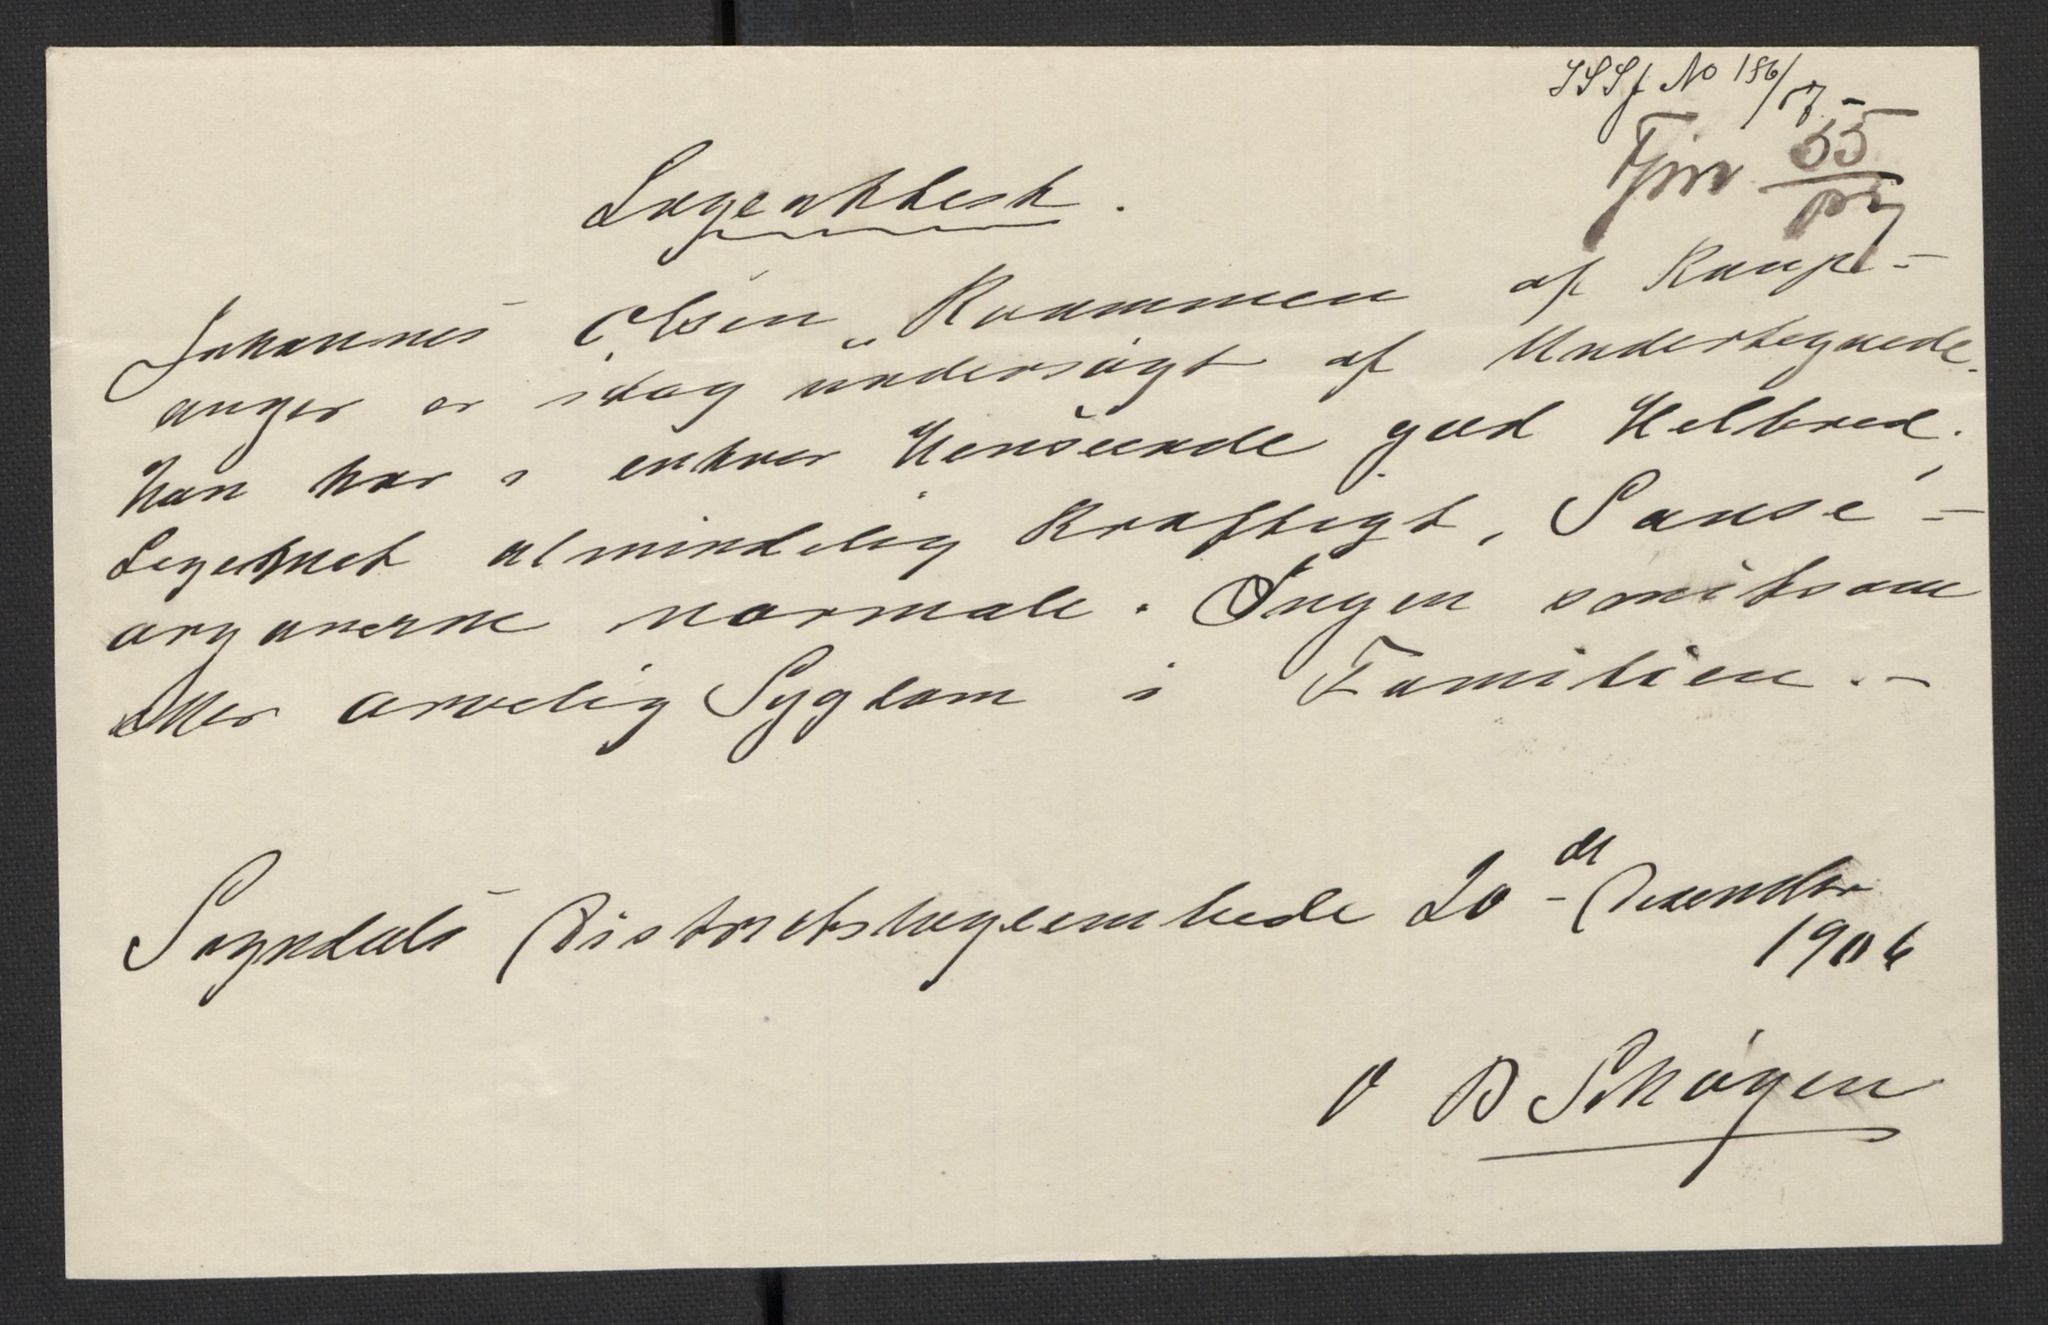 No 186/07
55
Lægeattest.
Johannes Olsen Kvammen af Kaup-
anger er idag undersøgt af Undertegnede.
Han har i enhver Henseende god Helbred.
Legemet almindelig kraftigt, Sanse-
organerne normale. Ingen smitsom
eller arvelig Sygdom i Familien.-
Sogndals Distriktslægeembede 20de Desember
1906
O B Skøyen